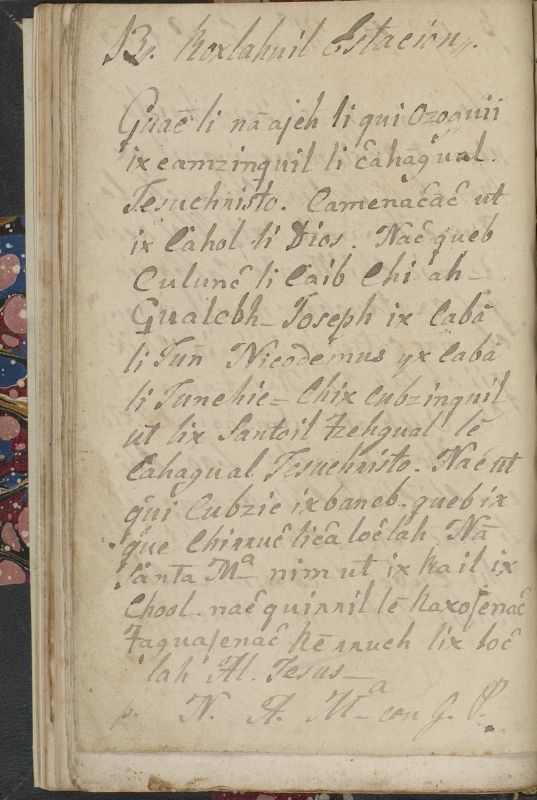 13. Roxlahuil Estacion.
Guac̃ li nã ajẽh li qui Ozoquii
ix camzinquil li c̃ahag̃ual.
Jesuchristo. Camenac̃ac̃ ut
ix C̃ahol li Dios. Nac̃ queb
Culunc̃ li Caib Chi ah_
Gualebh_ Joseph ix Cabã
li Juñ Nicodemus yx Cabã
li Junchic_ Chix Cubzinquil
ut lix Santoil Tzehgual lẽ
C̃ahagual Jesuchristo. Nac̃ ut
qũi Cubzic ixbaneb. queb ix
qũe Chirruc̃ lic̃a loc̃lah Nã
Sãnta Mª_ nim ut ix Rail ix
Chool. nac̃ quirril lẽ Raxofenac̃
Taguafenac̃ Rẽ rruch lix loc̃
lah Al. Jesus_
p. N. A. Mª_ con G. P.